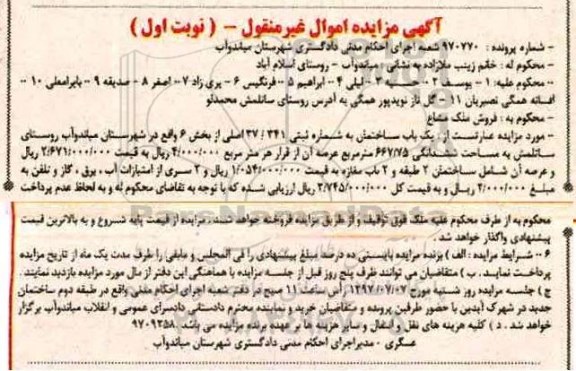 آگهی مزایده اموال غیرمنقول – ( نوبت اول )
– شماره پرونده : ۹۷۰۷۷۰ شعبه اجرای احکام مدنی دادگستری شهرستان میاندوآب
– محکوم له : خانم زینب ملازاده به نشانی : میاندوآب – روستای اسلام آباد
– محکوم علیه: ۱ – یوسف ۲ – ۳ – لیلی ۴ – ابراهیم ۵ – فرنگیس ۶ – پری زاد ۷ – اصغر ۸ – صدیقه ۹ – بایرامعلی ۱۰ –
افسانه همگی نصیریان ۱۱ – گل ناز نویدپور همگی به آدرس روستای ساتلمش محمدلو
– محکوم به : فروش ملک مشاع
– مورد مزایده عبارتست از : یک باب ساختمان به شماره ثبتی ۳۴۱ / ۳۷ اصلی از بخش ۶ واقع در شهرستان میاندوآب روستای
ساتلمش به مساحت ششدانگی ۶۶۷/۷۵ مترمربع عرصه آن از قرار هر متر مربع ۴/۰۰۰/۰۰۰ ریال به قیمت ۲/۶۷۱/۰۰۰/۰۰۰ ریال
و عرصه آن شامل ساختمان ۲ طبقه و ۲ باب مغازه به قیمت ۱/۰۵۴/۰۰۰/۰۰۰ ریال و ۲ سری از امتیازات آب ، برق ، گاز و تلفن به
مبلغ ۲۰/۰۰۰/۰۰۰ ریال و به قیمت کل ۳/۷۴۵/۰۰۰/۰۰۰ ریال ارزیابی شده که با توجه به تقاضای محکوم له و به لحاظ عدم پرداخت
محکوم به از طرف محکوم علیه ملک فوق توقیف و از طریق مزایده فروخته خواهد شد. مزایده از قیمت پایه شروع و به بالاترین قیمت
پیشنهادی واگذار خواهد شد .
۶ – شرایط مزایده : الف ) برنده مزایده بایستی ده درصد مبلغ پیشنهادی را فی المجلس و مابقی را ظرف مدت یک ماه از تاریخ مزایده
پرداخت نماید. ب ) متقاضیان می توانند ظرف پنج روز قبل از جلسه مزایده با هماهنگی این دفتر از مال مورد مزایده بازدید نمایند.
ج ) جلسه مزایده روز شنبه مورخ ۱۳۹۷/۰۷/۰۷ راس ساعت ۱۱ صبح در دفتر شعبه اجرای احکام مدنی واقع در طبقه دوم ساختمان
جدید در شهرک آیدین با حضور طرفین پرونده و متقاضیان خرید و نماینده محترم دادستانی دادسرای عمومی و انقلاب میاندوآب برگزار
خواهد شد . د ) کلیه هزینه های نقل و انتقال و سایر هزینه ها بر عهده برنده مزایده می باشد. ۹۷۰۹۳۵۸
عسگری – مدیراجرای احکام مدنی دادگستری شهرستان میاندوآب